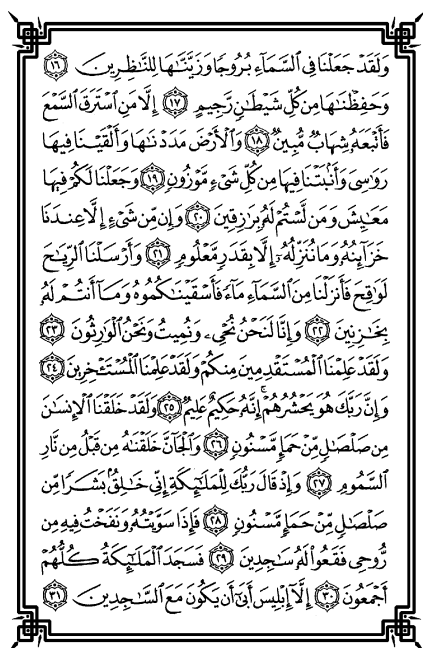 وَلَقَدْ جَعَلْنَا فِي السَّمَآءِ بُرُوجًا وَزَيَّنَّٰهَا لِلنَّٰظِرِينَ ١٦
وَحَفِظْنَٰهَا مِن كُلِّ شَيْطَٰنٍ رَّجِيمٍ ١٧ إِلَّا مَنِ اسْتَرَقَ السَّمْعَ
فَأَتْبَعَهُۥ شِهَابٌ مُّبِينٌ ١٨ وَالْأَرْضَ مَدَدْنَٰهَا وَأَلْقَيْنَا فِيهَا
رَوَٰسِيَ وَأَنۢبَتْنَا فِيهَا مِن كُلِّ شَيْءٍ مَّوْزُونٍ ١٩ وَجَعَلْنَا لَكُمْ فِيهَا
مَعَٰيِشَ وَمَن لَّسْتُمْ لَهُۥ بِرَٰزِقِينَ ٢٠ وَإِن مِّن شَيْءٍ إِلَّا عِندَنَا
خَزَآئِنُهُۥ وَمَا نُنَزِّلُهُۥٓ إِلَّا بِقَدَرٍ مَّعْلُومٍ ٢١ وَأَرْسَلْنَا الرِّيَٰحَ
لَوَٰقِحَ فَأَنزَلْنَا مِنَ السَّمَآءِ مَآءً فَأَسْقَيْنَٰكُمُوهُ وَمَآ أَنتُمْ لَهُۥ
بِخَٰزِنِينَ ٢٢ وَإِنَّا لَنَحْنُ نُحْيِۦ وَنُمِيتُ وَنَحْنُ الْوَٰرِثُونَ ٢٣
وَلَقَدْ عَلِمْنَا الْمُسْتَقْدِمِينَ مِنكُمْ وَلَقَدْ عَلِمْنَا الْمُسْتَـْٔخِرِينَ ٢٤
وَإِنَّ رَبَّكَ هُوَ يَحْشُرُهُمْ ۚ إِنَّهُۥ حَكِيمٌ عَلِيمٌ ٢٥ وَلَقَدْ خَلَقْنَا الْإِنسَٰنَ
مِن صَلْصَٰلٍ مِّنْ حَمَإٍ مَّسْنُونٍ ٢٦ وَالْجَآنَّ خَلَقْنَٰهُ مِن قَبْلُ مِن نَّارِ
السَّمُومِ ٢٧ وَإِذْ قَالَ رَبُّكَ لِلْمَلَٰٓئِكَةِ إِنِّي خَٰلِقٌۢ بَشَرًا مِّن
صَلْصَٰلٍ مِّنْ حَمَإٍ مَّسْنُونٍ ٢٨ فَإِذَا سَوَّيْتُهُۥ وَنَفَخْتُ فِيهِ مِن
رُّوحِي فَقَعُوا۟ لَهُۥ سَٰجِدِينَ ٢٩ فَسَجَدَ الْمَلَٰٓئِكَةُ كُلُّهُمْ
أَجْمَعُونَ ٣٠ إِلَّآ إِبْلِيسَ أَبَىٰٓ أَن يَكُونَ مَعَ السَّٰجِدِينَ ٣١